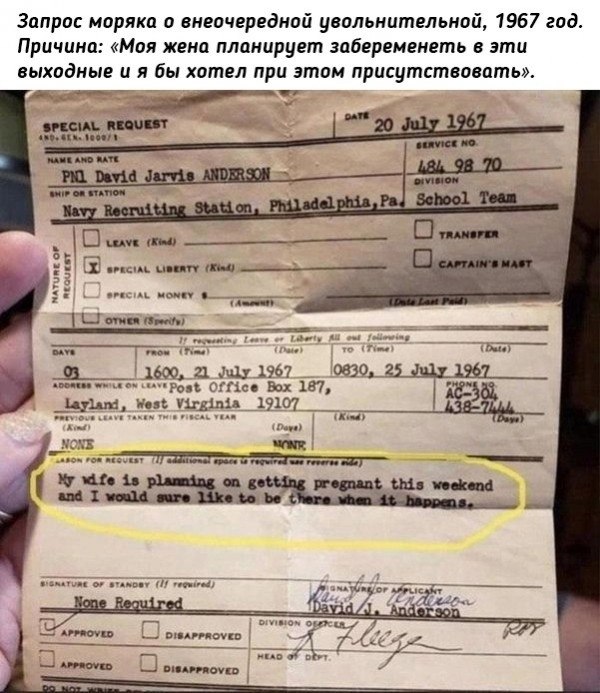 Запрос моряка о внеочередной увольнительной, 1967 год.
Причина: «Моя жена планирует забеременеть в эти
выходные и я бы хотел при этом присутствовать».
SPECIAL REQUEST
DATE
20 July 1967
NAME AND RATE
PN1 David Jarvis ANDERSON
SERVICE NO.
484 98 70
SHIP OR STATION
Navy Recruiting Station, Philadelphia, Pa.
DIVISION
School Team
NATURE OF
REQUEST
LEAVE (Kind)
TRANSFER
X SPECIAL LIBERTY (Kind)
CAPTAIN'S MAST
SPECIAL MONEY $
(Amount)
(Date Last Paid)
OTHER (Specify)
If requesting Leave or Liberty fill out following
DAYS
FROM (Time)
(Date)
TO (Time)
(Date)
03
1600, 21 July 1967
0830, 25 July 1967
ADDRESS WHILE ON LEAVE
Post Office Box 187,
Layland, West Virginia 19107
PHONE NO.
AC-304
438-7444
PREVIOUS LEAVE TAKEN THIS FISCAL YEAR
(Kind)
(Days)
(Kind)
(Days)
NONE
NONE
REASON FOR REQUEST (If additional space is required use reverse side)
My wife is planning on getting pregnant this weekend
and I would sure like to be there when it happens.
SIGNATURE OF STANDBY (If required)
None Required
SIGNATURE OF APPLICANT
David J. Anderson
David J. Anderson
APPROVED
DISAPPROVED
DIVISION OFFICER
APPROVED
DISAPPROVED
HEAD OF DEPT.
DO NOT WRITE